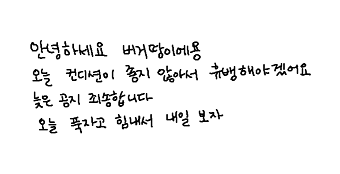 안녕하세요 버거땅이에용
오늘 컨디션이 좋지 않아서 휴뱅해야겠어요
늦은 공지 죄송합니다
오늘 푹자고 힘내서 내일 보자